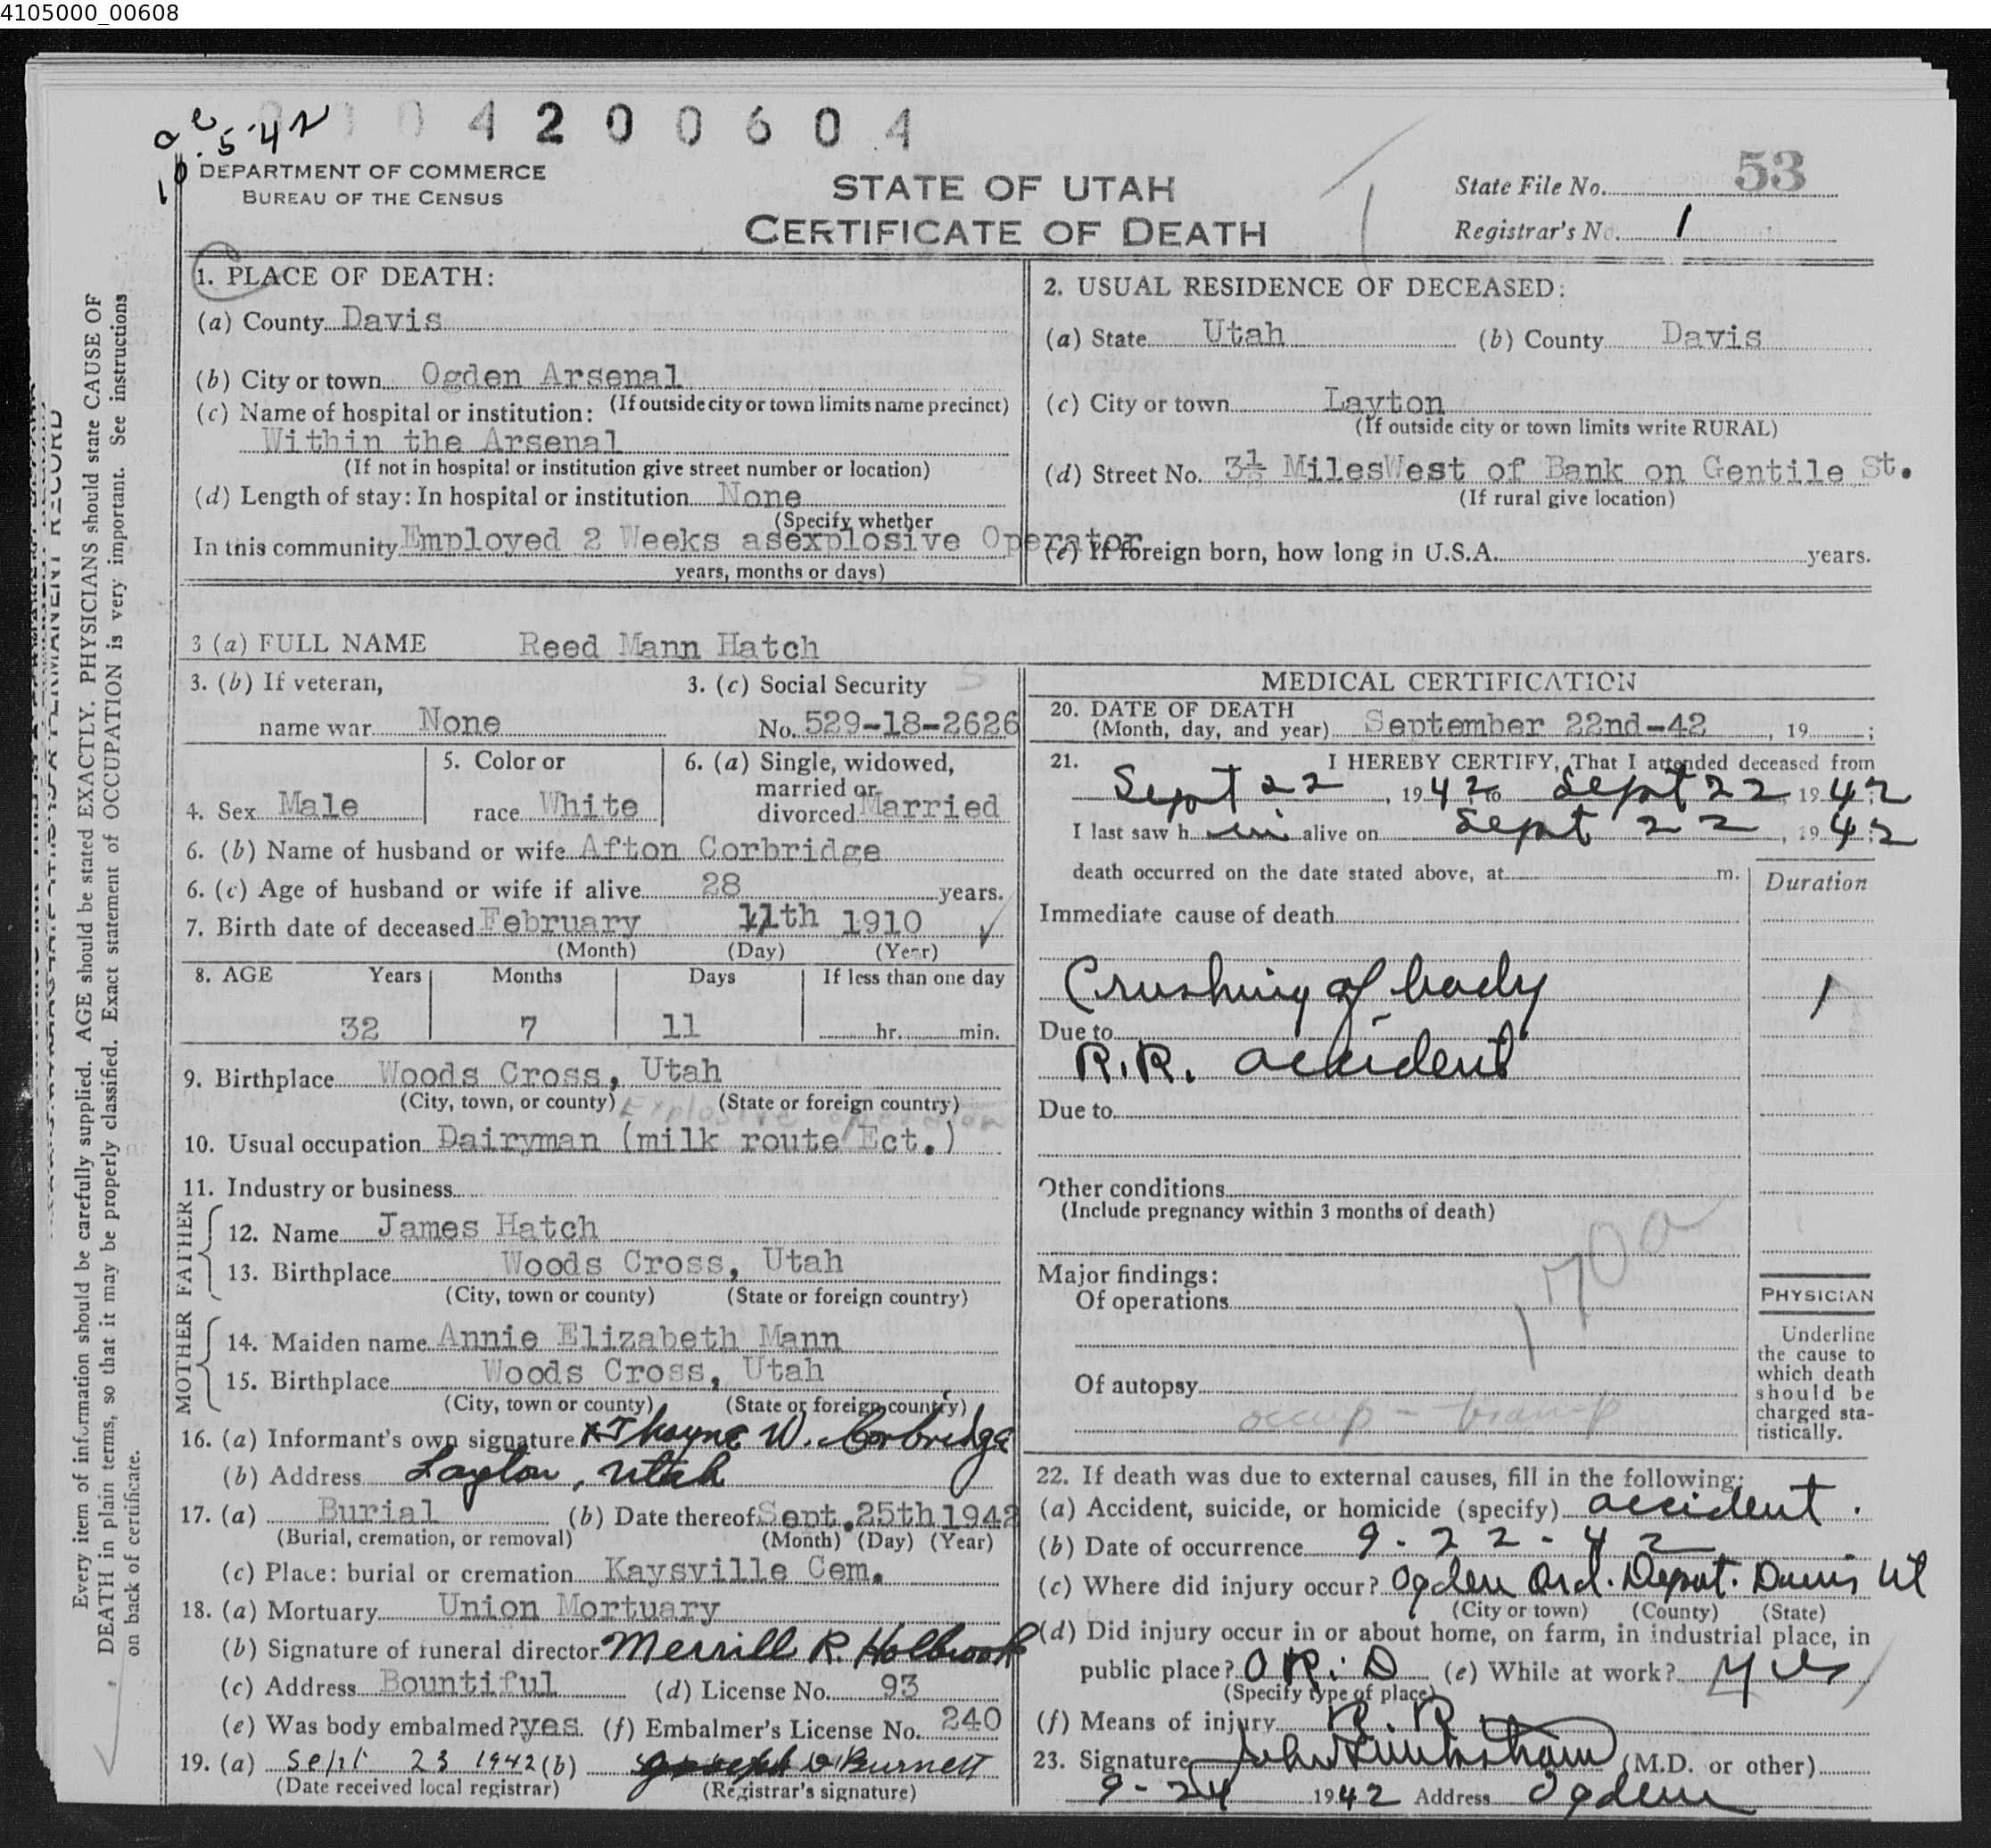 4105000_00608
4 2 0 0 6 0 4
DEPARTMENT OF COMMERCE
BUREAU OF THE CENSUS
STATE OF UTAH
CERTIFICATE OF DEATH
State File No. 53
Registrar's No. 1
Every item of information should be carefully supplied. AGE should be stated EXACTLY. PHYSICIANS should state CAUSE OF
DEATH in plain terms, so that it may be properly classified. Exact statement of OCCUPATION is very important. See instructions
on back of certificate.
1. PLACE OF DEATH:
(a) County Davis
(b) City or town Ogden Arsenal
(If outside city or town limits name precinct)
(c) Name of hospital or institution:
Within the Arsenal
(If not in hospital or institution give street number or location)
(d) Length of stay: In hospital or institution None
(Specify whether
In this community Employed 2 Weeks asexplosive Operator
years, months or days)
2. USUAL RESIDENCE OF DECEASED:
(a) State Utah (b) County Davis
(c) City or town Layton
(If outside city or town limits write RURAL)
(d) Street No. MilesWest of Bank on Gentile St.
(If rural give location)
(e) If foreign born, how long in U.S.A. years.
3 (a) FULL NAME Reed Mann Hatch
3. (b) If veteran,
name war None
3. (c) Social Security
No. 529-18-2626
4. Sex Male
5. Color or
race White
6. (a) Single, widowed,
married or
divorced Married
6. (b) Name of husband or wife Afton Corbridge
6. (c) Age of husband or wife if alive 28 years.
7. Birth date of deceased February 11th 1910
(Month) (Day) (Year)
8. AGE Years Months Days If less than one day
32 7 11 hr. min.
9. Birthplace Woods Cross, Utah
(City, town, or county) (State or foreign country)
Explosive operation
10. Usual occupation Dairyman (milk route Ect.)
11. Industry or business
FATHER
12. Name James Hatch
13. Birthplace Woods Cross, Utah
(City, town or county) (State or foreign country)
MOTHER
14. Maiden name Annie Elizabeth Mann
15. Birthplace Woods Cross, Utah
(City, town or county) (State or foreign country)
16. (a) Informant's own signature x Thayne W. Corbridge
(b) Address Layton, Utah
17. (a) Burial (b) Date thereof Sept. 25th 1942
(Burial, cremation, or removal) (Month) (Day) (Year)
(c) Place: burial or cremation Kaysville Cem.
18. (a) Mortuary Union Mortuary
(b) Signature of funeral director Merrill R. Holbrook
(c) Address Bountiful (d) License No. 93
(e) Was body embalmed? yes. (f) Embalmer's License No. 240
19. (a) Sept 23 1942 (b) Joseph D Burnett
(Date received local registrar) (Registrar's signature)
MEDICAL CERTIFICATION
20. DATE OF DEATH
(Month, day, and year) September 22nd-42, 19 ;
21. I HEREBY CERTIFY, That I attended deceased from
Sept 22, 1942 to Sept 22, 1942;
I last saw h im alive on Sept 22, 1942
death occurred on the date stated above, at m.
Duration
Immediate cause of death
Crushing of body
Due to
R.R. accident
Due to
Other conditions
(Include pregnancy within 3 months of death)
Major findings:
Of operations
170a
Of autopsy
occup - transp
PHYSICIAN
Underline
the cause to
which death
should be
charged sta-
tistically.
22. If death was due to external causes, fill in the following:
(a) Accident, suicide, or homicide (specify) accident.
(b) Date of occurrence 9-22-42
(c) Where did injury occur? Ogden Ord. Depot. Davis Ut
(City or town) (County) (State)
(d) Did injury occur in or about home, on farm, in industrial place, in
public place? (e) While at work? yes
(Specify type of place)
(f) Means of injury R.R.
23. Signature (M.D. or other)
9-24 1942 Address Ogden